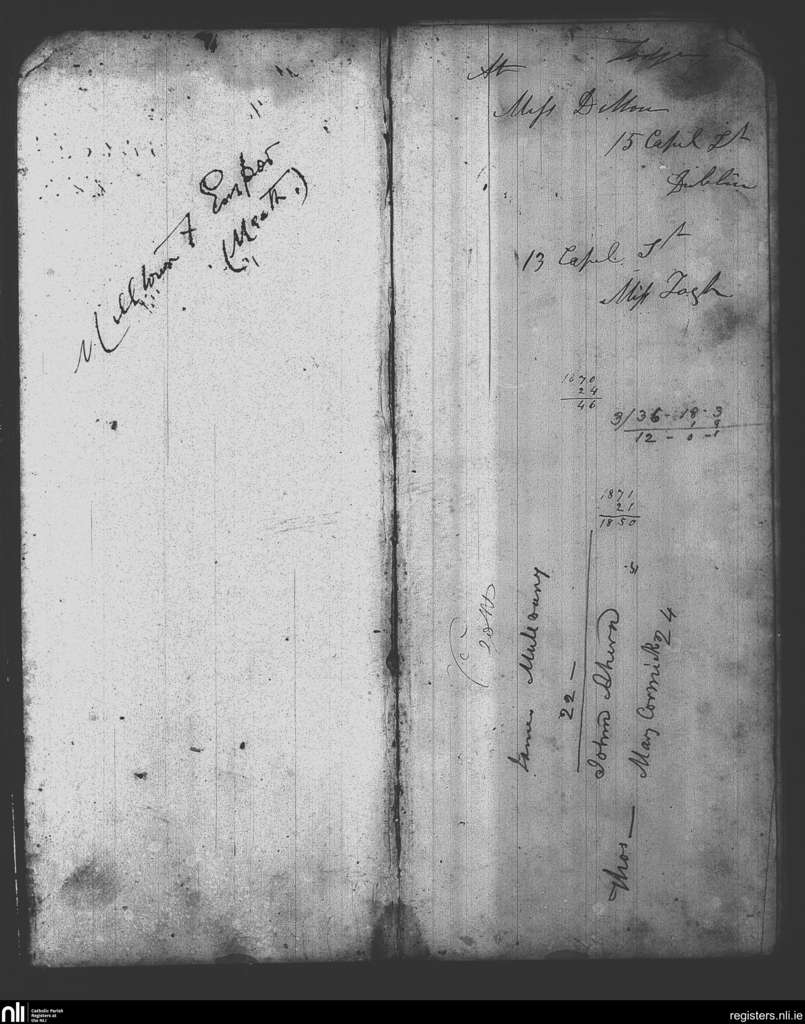 Milltown & Empor
(Meath.)
At
Miss Dillon
15 Capel St
Dublin
13 Capel St
Miss
1870
24
46
3/36-18-3
12-0-1
1871
21
1850
James Mullvany
22 —
John Ahern
Mary Cormick 24
Thos —
nli
Catholic Parish
Registers at
the NLI
registers.nli.ie